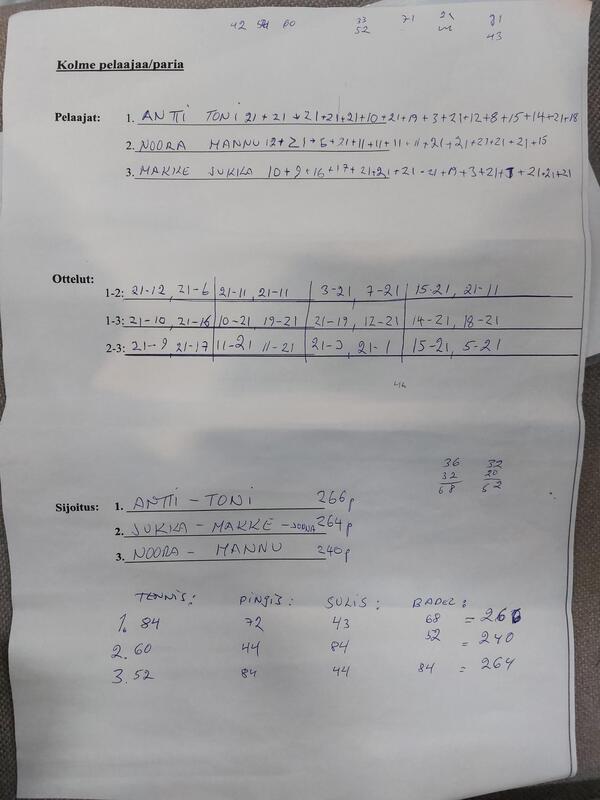 42 54 80 33 52 71 21 91 43
Kolme pelaajaa/paria
Pelaajat: 1. ANTTI TONI 21+21+21+21+21+10+21+19+3+21+12+8+15+14+21+18
2. NOORA MANNU 12+21+6+21+11+11+11+11+21+21+21+21+21+15
3. MAKKE JUKKA 10+9+16+17+21+21+21+21+19+3+21+1+21+21+21
Ottelut:
1-2: 21-12, 21-6 21-11, 21-11 3-21, 7-21 15-21, 21-11
1-3: 21-10, 21-16 10-21 19-21 21-19, 12-21 14-21, 18-21
2-3: 21-9, 21-17 11-21 11-21 21-3, 21-1 15-21, 5-21
44
36 32
32 20
68 52
Sijoitus: 1. ANTTI - TONI 266p
2. JUKKA - MAKKE - JOONA 264p
3. NOORA - MANNU 240p
TENNIS: PINGIS: SULIS: BADEL:
1. 84 72 43 68 = 266
2. 60 44 84 52 = 240
3. 52 84 44 84 = 264